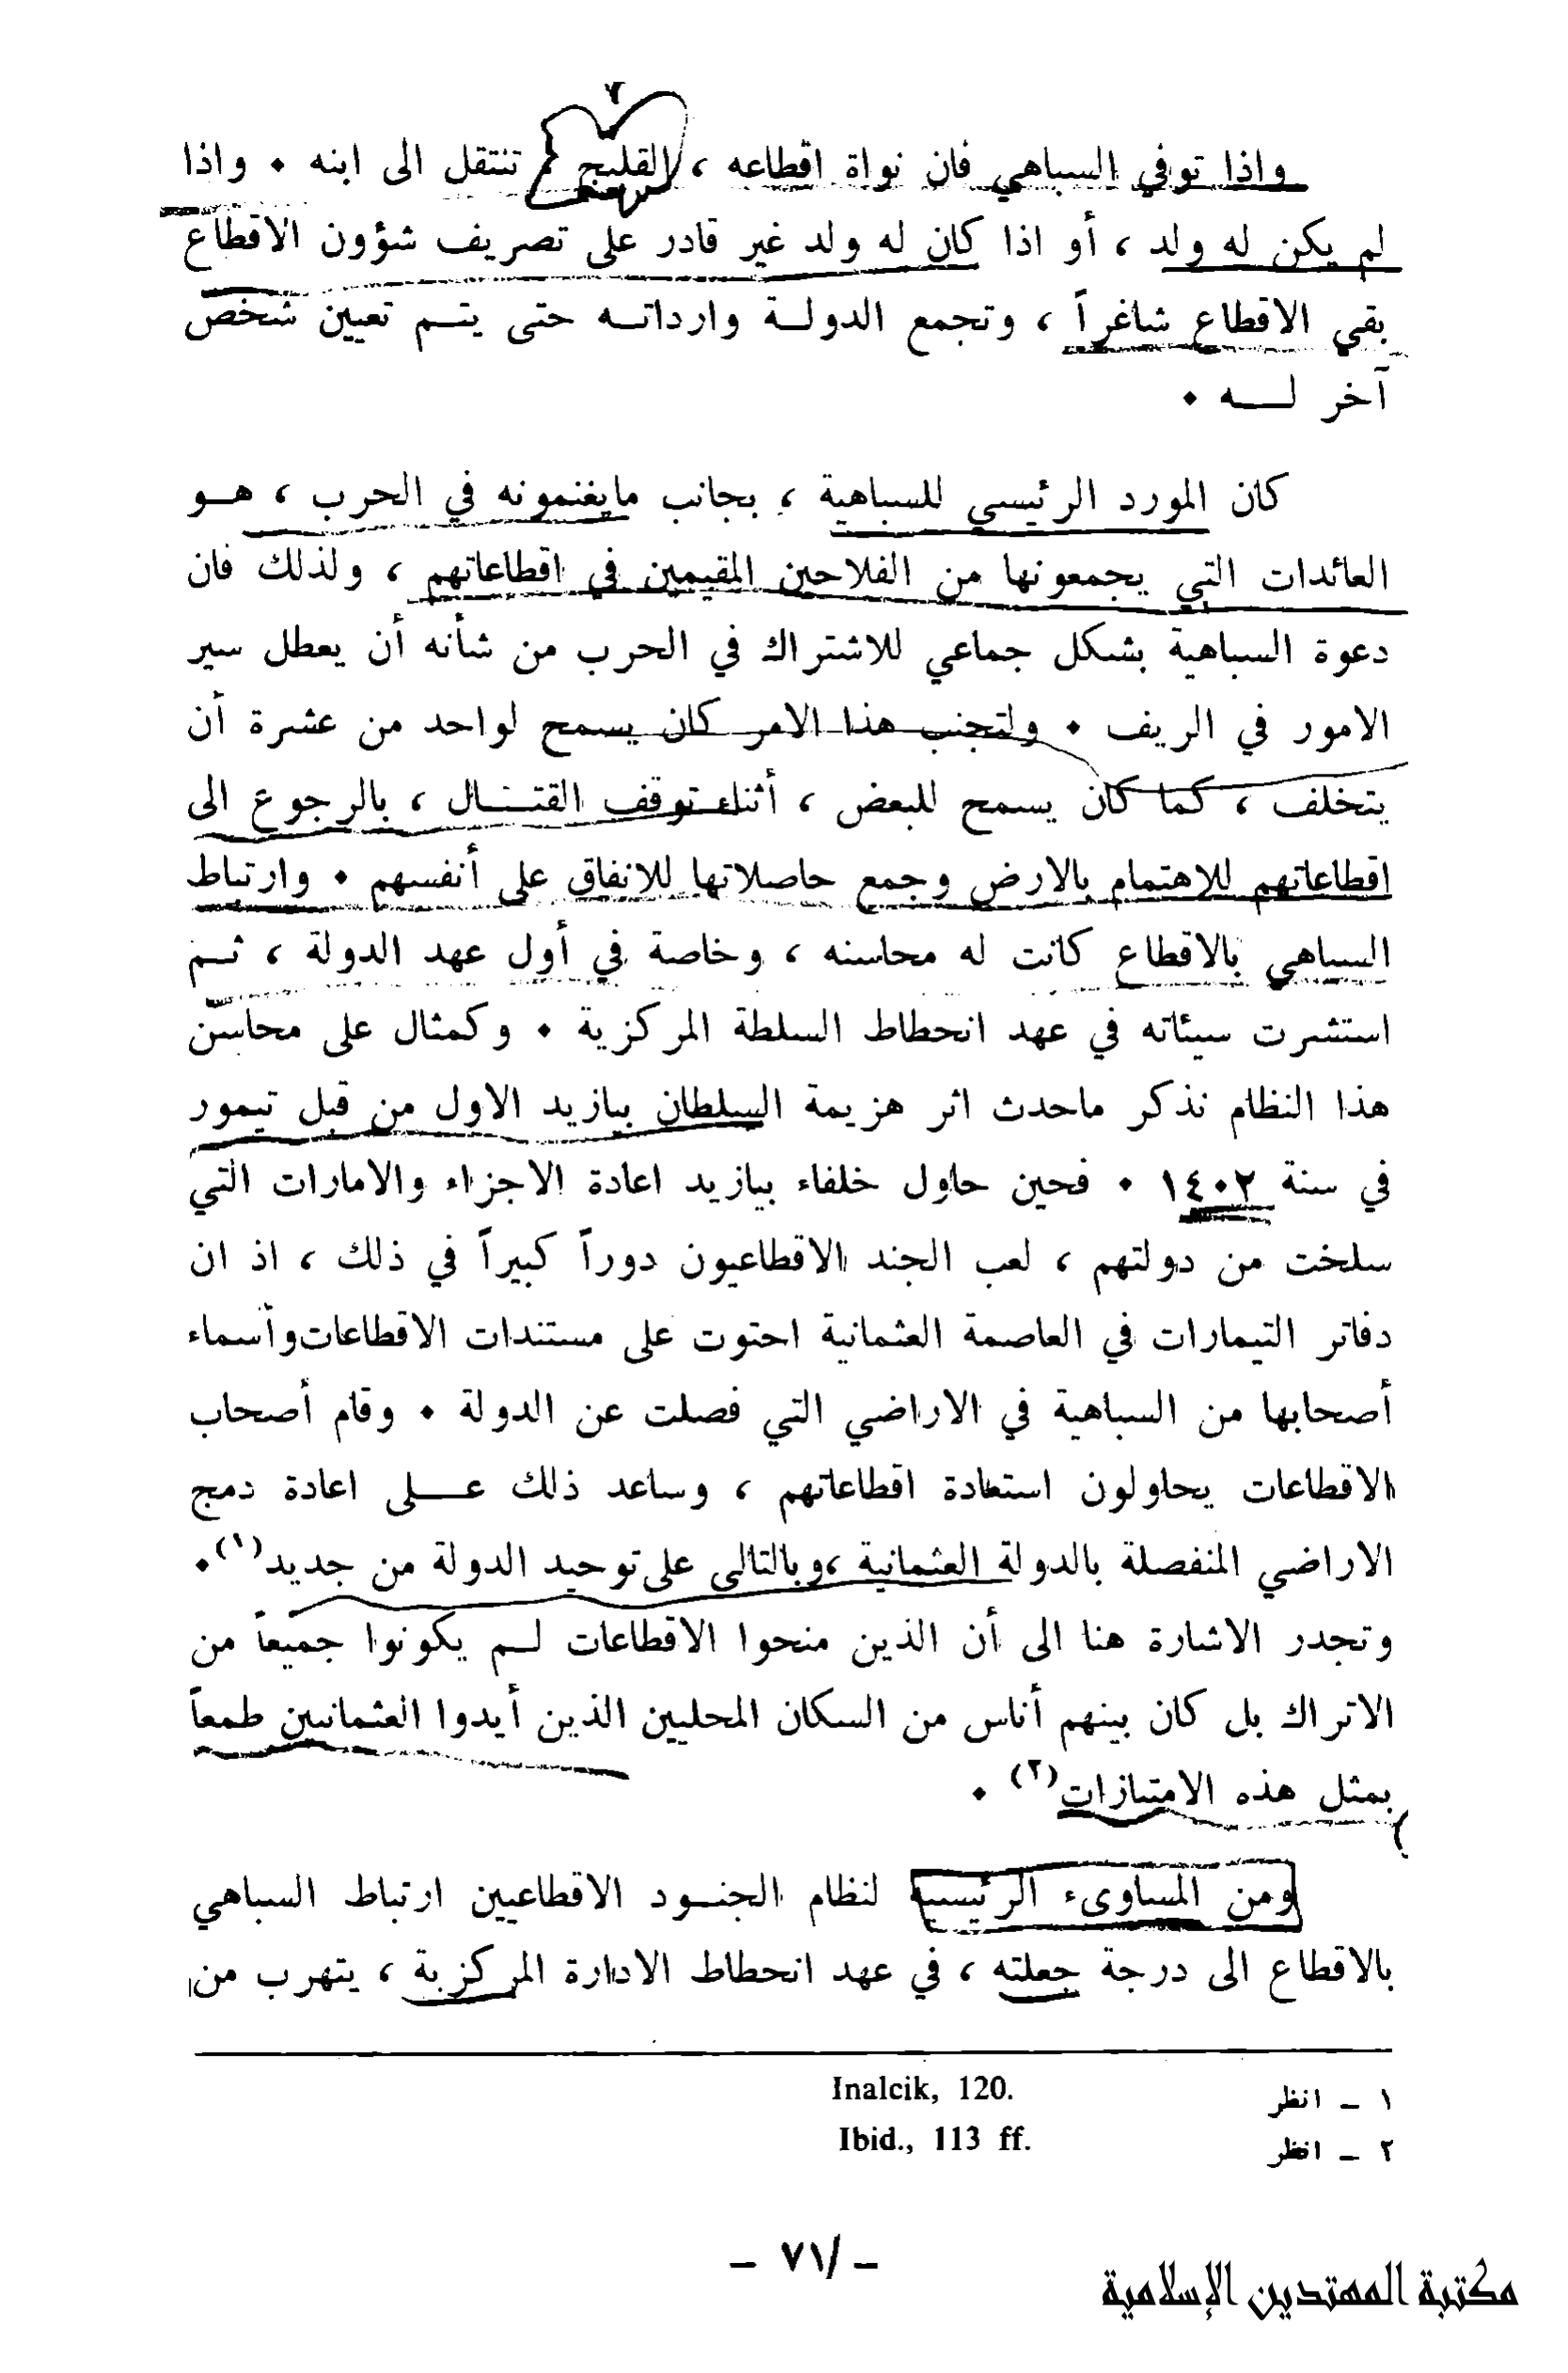 واذا توفي السباهي فان نواة اقطاعه ، القليج ، تنتقل الى ابنه ٠ واذا
لم يكن له ولد ، أو اذا كان له ولد غير قادر على تصريف شؤون الاقطاع
بقي الاقطاع شاغراً ، وتجمع الدولة وارداته حتى يتم تعيين شخص
آخر له ٠
كان المورد الرئيسي للسباهية ، بجانب مايغنمونه في الحرب ، هو
العائدات التي يجمعونها من الفلاحين المقيمين في اقطاعاتهم ، ولذلك فان
دعوة السباهية بشكل جماعي للاشتراك في الحرب من شأنه أن يعطل سير
الامور في الريف ٠ ولتجنب هذا الامر كان يسمح لواحد من عشرة أن
يتخلف ، كما كان يسمح للبعض ، أثناء توقف القتال ، بالرجوع الى
اقطاعاتهم للاهتمام بالارض وجمع حاصلاتها للانفاق على أنفسهم ٠ وارتباط
السباهي بالاقطاع كانت له محاسنه ، وخاصة في أول عهد الدولة ، ثم
استشرت سيئاته في عهد انحطاط السلطة المركزية ٠ وكمثال على محاسن
هذا النظام نذكر ماحدث اثر هزيمة السلطان بيازيد الاول من قبل تيمور
في سنة ١٤٠٢ ٠ فحين حاول خلفاء بيازيد اعادة الاجزاء والامارات التي
سلخت من دولتهم ، لعب الجند الاقطاعيون دوراً كبيراً في ذلك ، اذ ان
دفاتر التيمارات في العاصمة العثمانية احتوت على مستندات الاقطاعات وأسماء
أصحابها من السباهية في الاراضي التي فصلت عن الدولة ٠ وقام أصحاب
الاقطاعات يحاولون استعادة اقطاعاتهم ، وساعد ذلك على اعادة دمج
الاراضي المنفصلة بالدولة العثمانية ، وبالتالي على توحيد الدولة من جديد(١)٠
وتجدر الاشارة هنا الى أن الذين منحوا الاقطاعات لم يكونوا جميعاً من
الاتراك بل كان بينهم أناس من السكان المحليين الذين أيدوا العثمانيين طمعاً
بمثل هذه الامتيازات(٢) ٠
ومن المساوىء الرئيسية لنظام الجنود الاقطاعيين ارتباط السباهي
بالاقطاع الى درجة جعلته ، في عهد انحطاط الادارة المركزية ، يتهرب من
١ – انظر Inalcik, 120.
٢ – انظر Ibid., 113 ff.
– ٧١/ –
مكتبة المهتدين الإسلامية